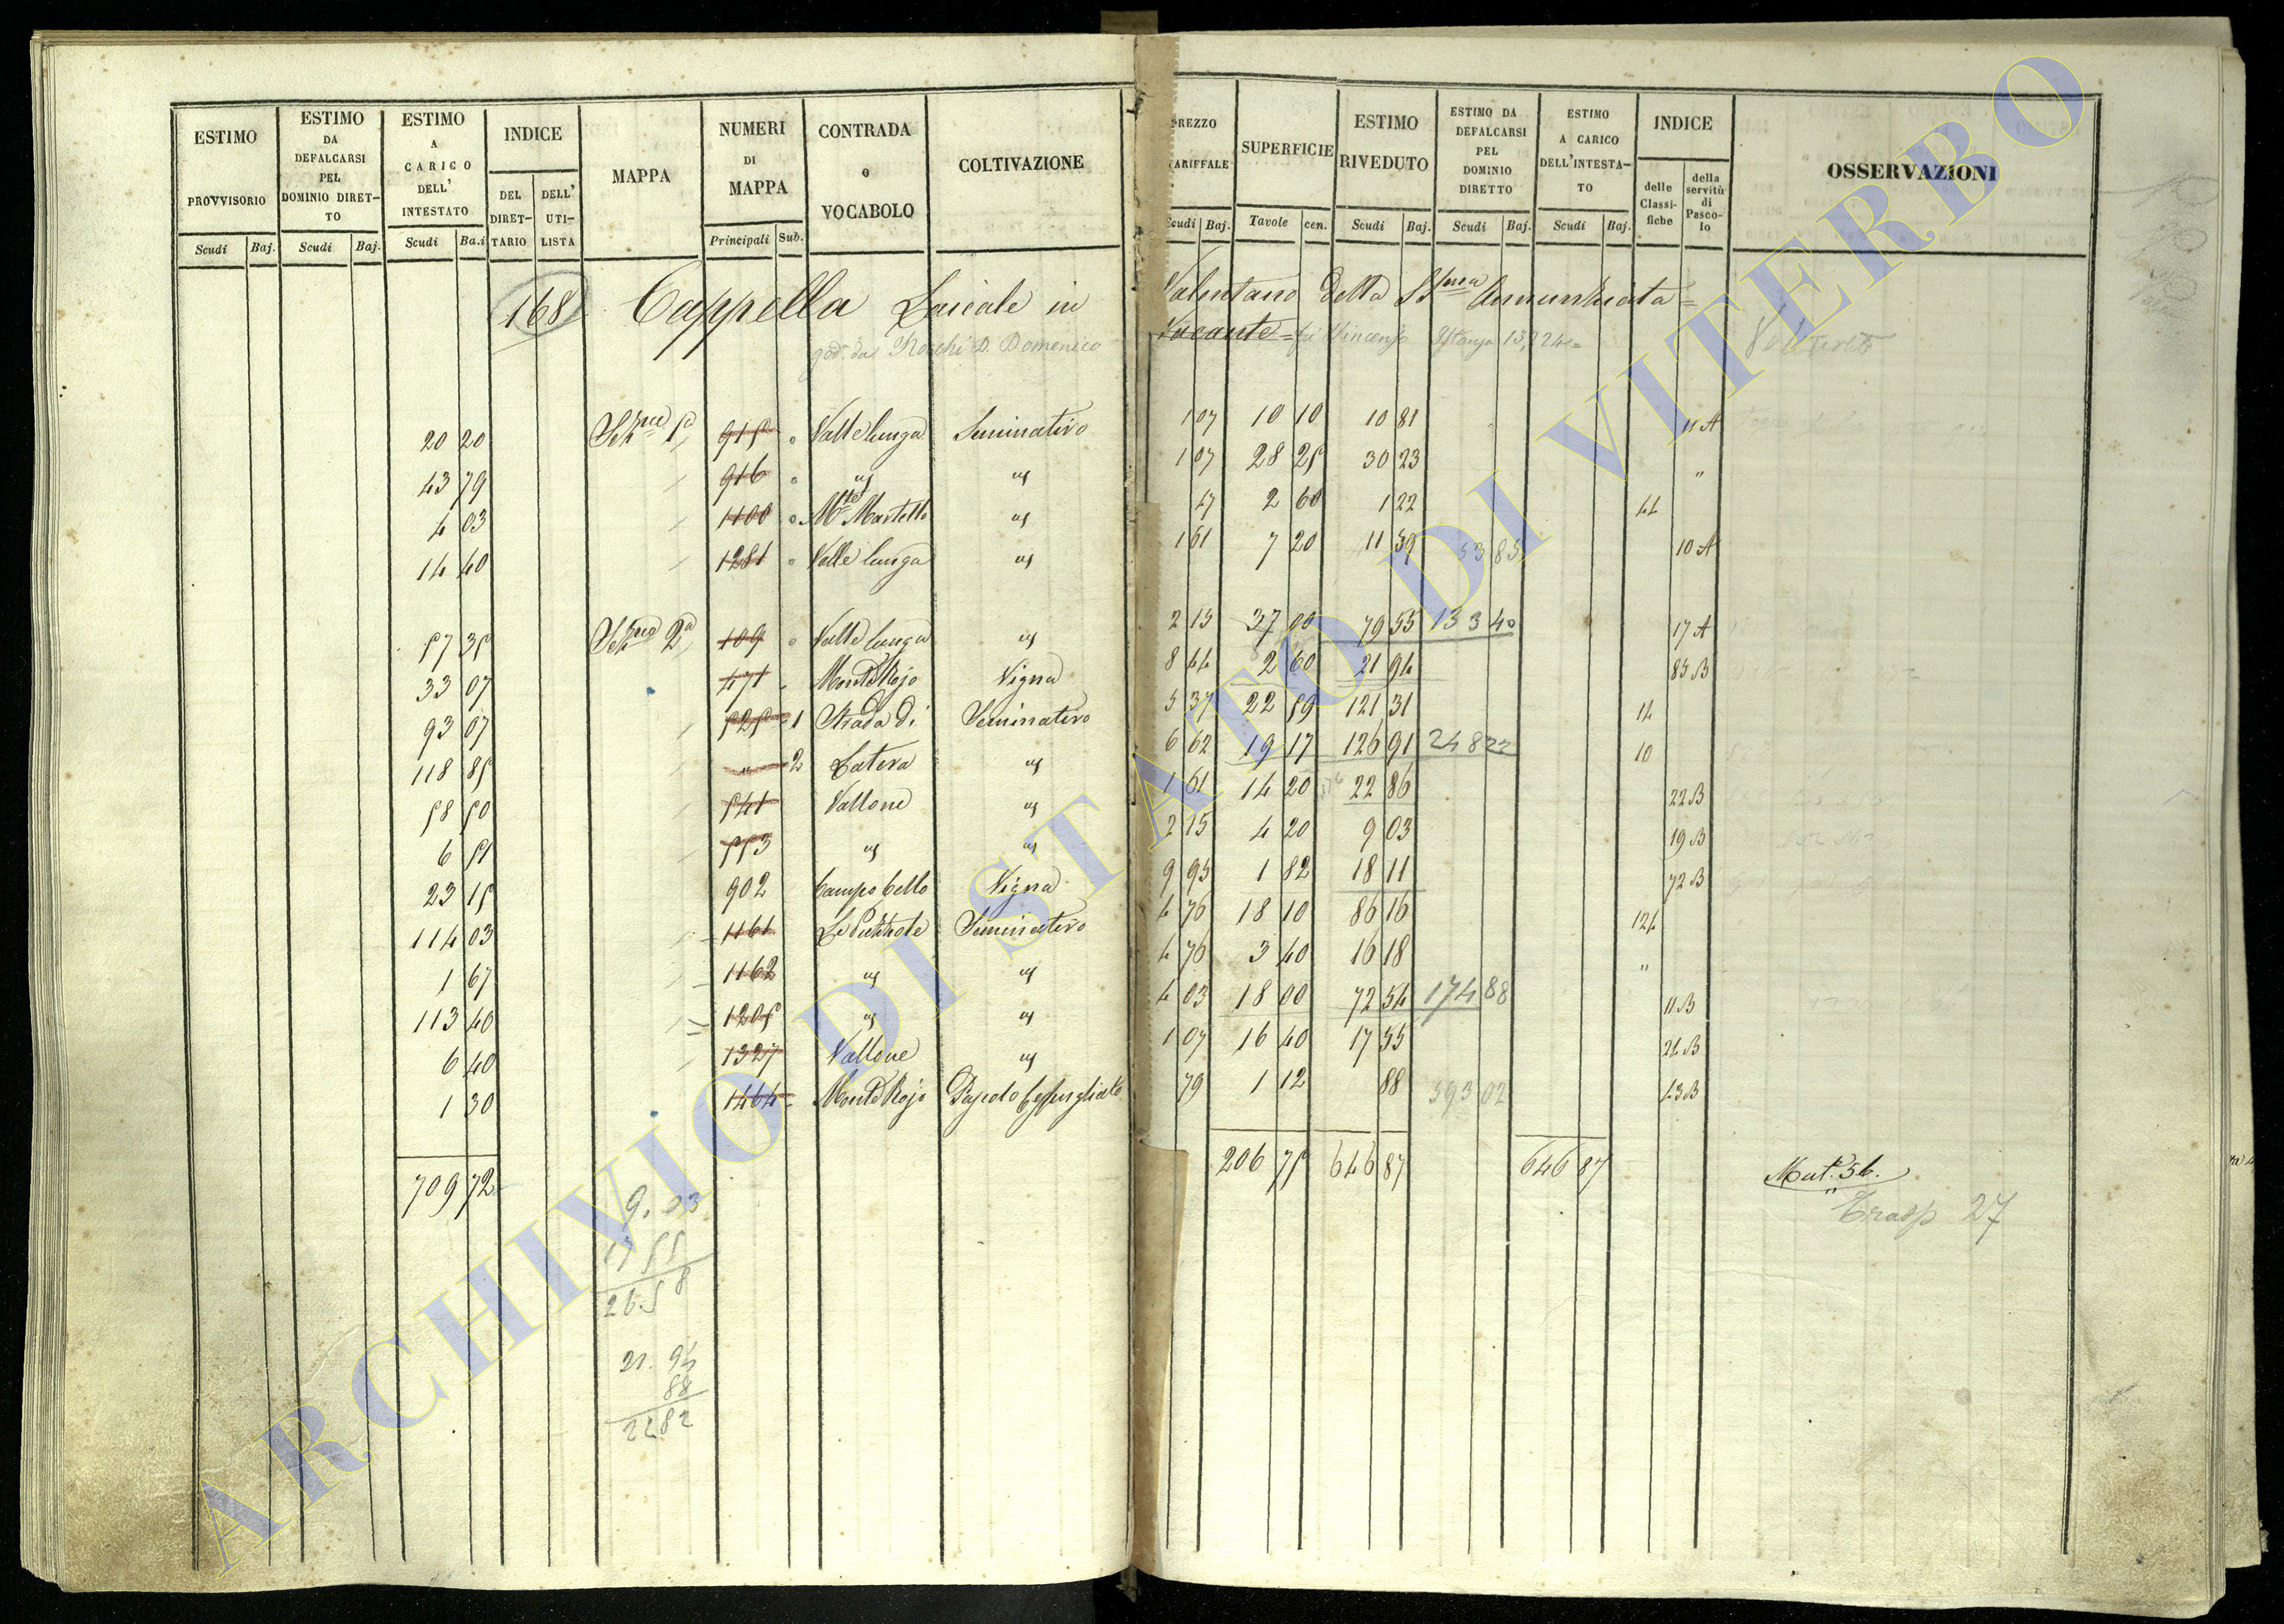 ESTIMO PROVVISORIO
ESTIMO DA DEFALCARSI PEL DOMINIO DIRETTO
ESTIMO A CARICO DELL' INTESTATO
INDICE
DEL DIRETTARIO
DELL' UTILISTA
MAPPA
NUMERI DI MAPPA
CONTRADA o VOCABOLO
COLTIVAZIONE
PREZZO TARIFFALE
SUPERFICIE
ESTIMO RIVEDUTO
ESTIMO DA DEFALCARSI PEL DOMINIO DIRETTO
ESTIMO A CARICO DELL'INTESTATO
INDICE
delle Classifiche
della servitù di Pascolo
OSSERVAZIONI
Scudi Baj. Scudi Baj. Scudi Ba.i Principali Sub. Scudi Baj. Tavole cen. Scudi Baj. Scudi Baj. Scudi Baj.
168 Cappella Laicale in Valentano della SSma Annunziata =
god. da Rocchi D. Domenico Vacante = fu Vincenzo Istanza 13,224 =
20 20 Sezne 1a 915 Valle lunga Seminativo 1 07 10 10 10 81 11 A
43 79 916 " " 1 07 28 25 30 23 "
4 03 1100 Mte Martello " 47 2 60 1 22 44
14 40 1281 Valle lunga " 1 61 7 20 11 59 53 85 10 A
57 35 Sezne 2a 109 Valle lunga " 2 15 37 00 79 55 133 40 17 A
33 07 471 Monte Rojo Vigna 8 44 2 60 21 94 85 B
93 07 525 1 Strada di Seminativo 5 37 22 59 121 31 14
118 85 " 2 Latera " 6 62 19 17 126 91 248 22 10
58 50 541 Vallone " 1 61 14 20 22 86 22 B
6 51 553 " " 2 15 4 20 9 03 19 B
23 15 902 Campo bello Vigna 9 95 1 82 18 11 72 B
114 03 1161 Le Piettrete Seminativo 4 76 18 10 86 16 124
1 67 1162 " " 4 76 3 40 16 18 "
113 40 1205 " " 4 03 18 00 72 54 174 88 11 B
6 40 1327 Vallone " 1 07 16 40 17 55 24 B
1 30 1464 Monte Rojo Pascolo Cespugliato 79 1 12 88 593 02 43 B
709 72 206 75 646 87 646 87 Mut. 56.
Trasp 27
9. 03
17 55
26.58
21. 94
88
22 82
ARCHIVIO DI STATO DI VITERBO